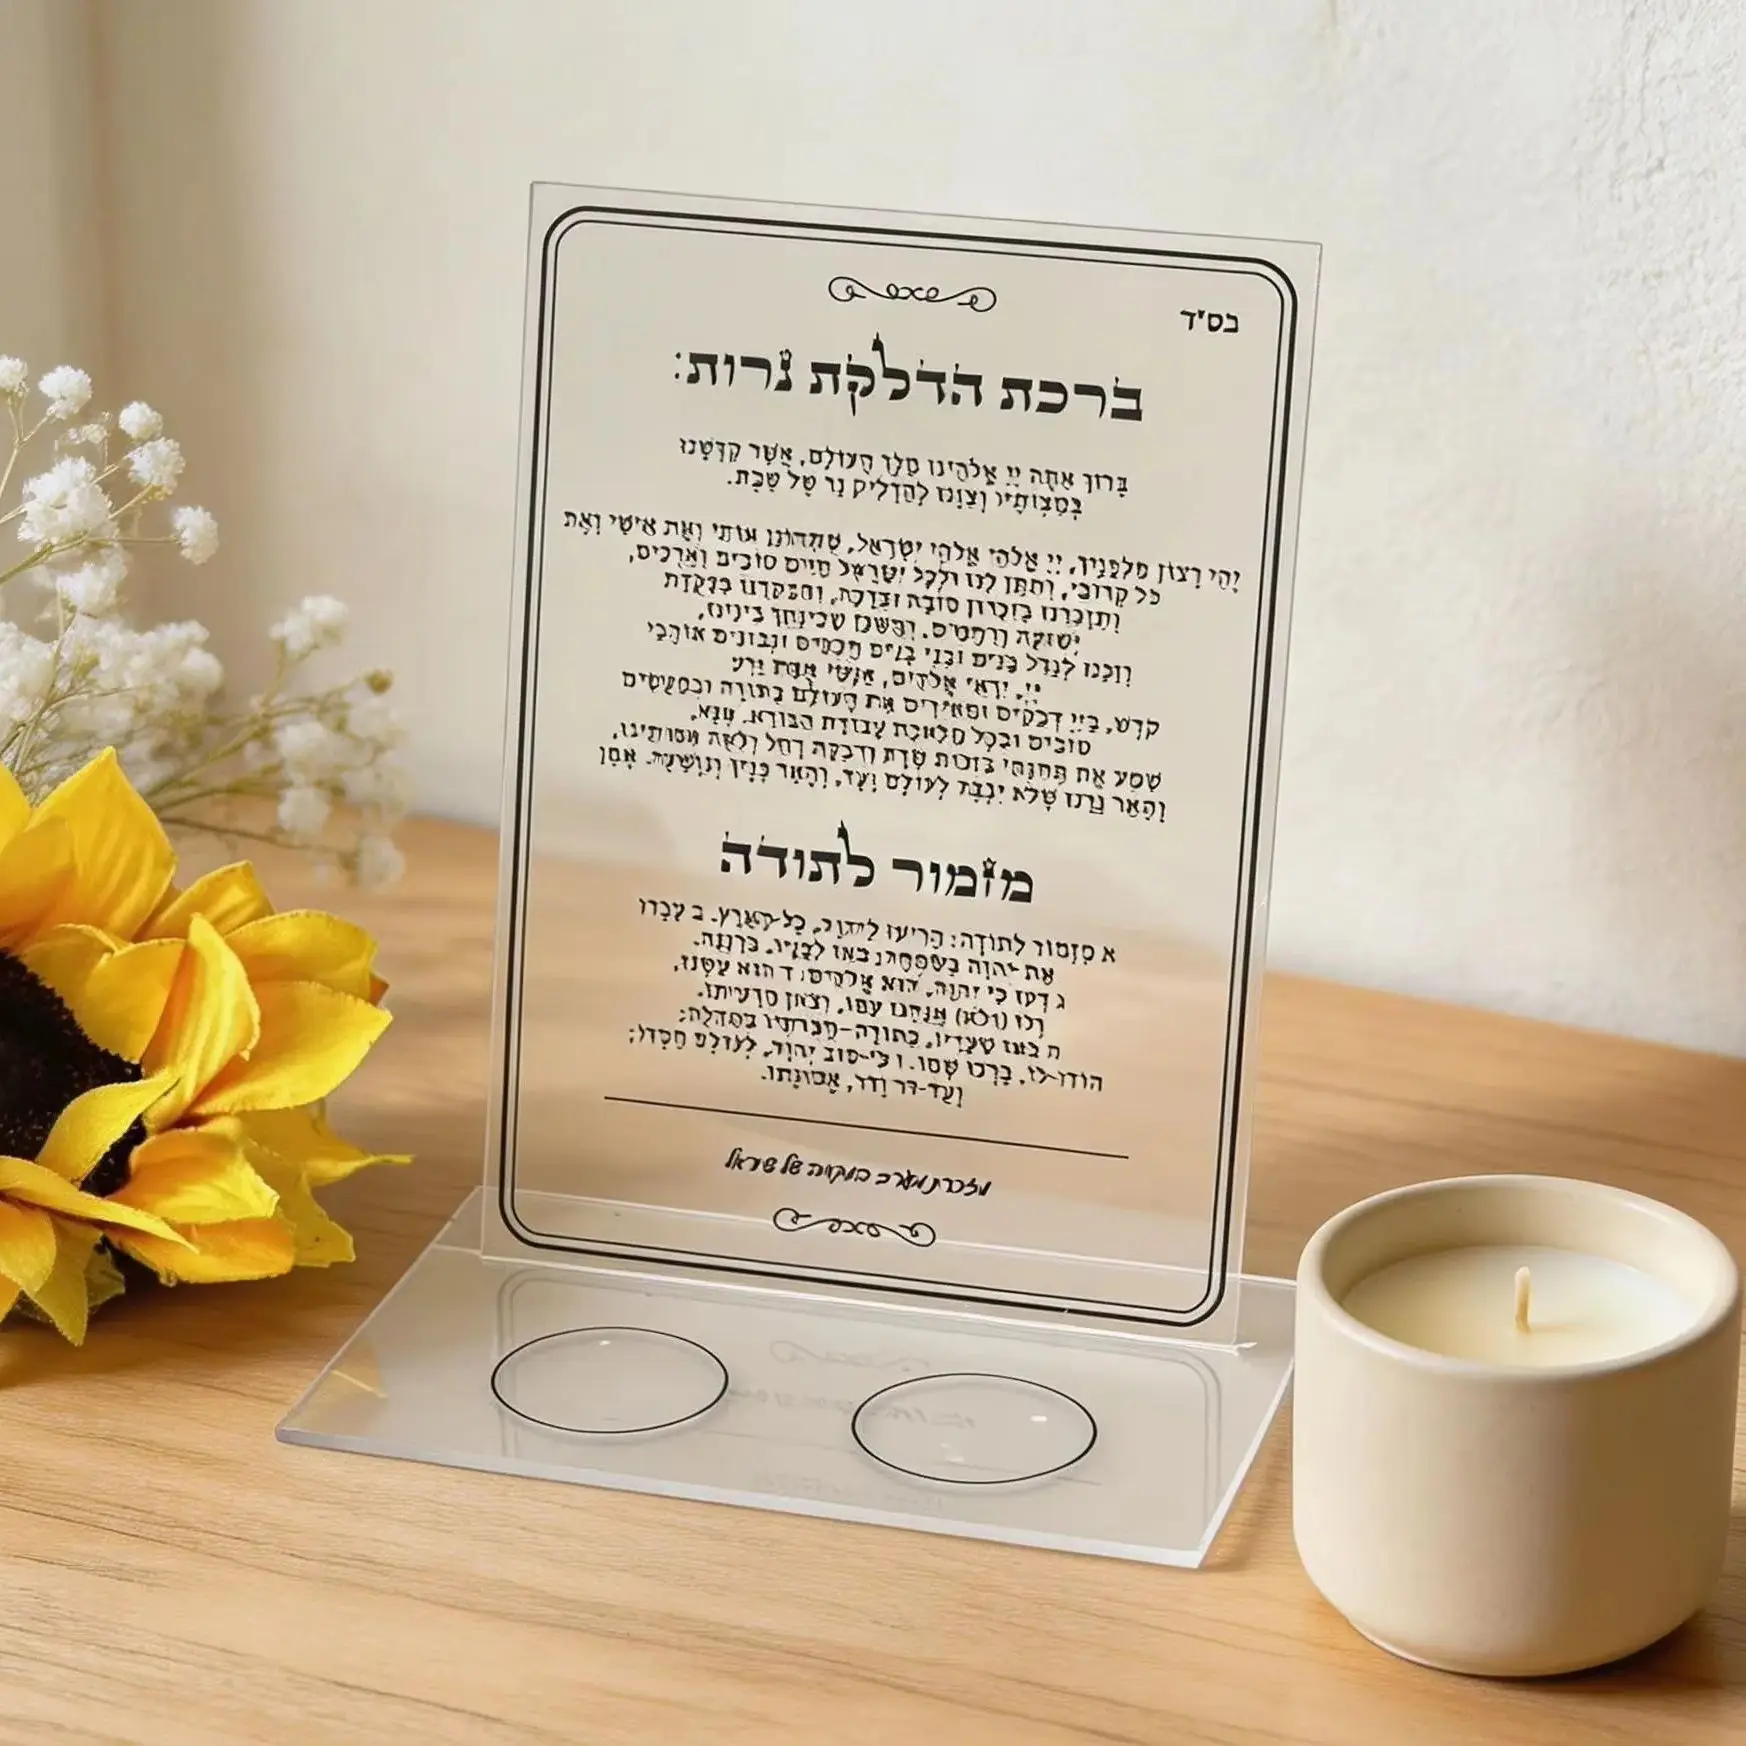 בס"ד
ברכת הדלקת נרות:
בָּרוּךְ אַתָּה יְיָ אֱלֹהֵינוּ מֶלֶךְ הָעוֹלָם, אֲשֶׁר קִדְּשָׁנוּ
בְּמִצְוֹתָיו וְצִוָּנוּ לְהַדְלִיק נֵר שֶׁל שַׁבָּת.
יְהִי רָצוֹן מִלְּפָנֶיךָ, יְיָ אֱלֹהַי אֱלֹהֵי יִשְׂרָאֵל, אוֹתִי וְאֶת אִישִׁי וְאֶת
כָּל קְרוֹבַי, וְתִתֵּן לָנוּ וּלְכָל יִשְׂרָאֵל חַיִּים טוֹבִים וַאֲרֻכִּים,
בְּזִכְרוֹן טוֹבָה וּבְרָכָה,
וְרַחֲמִים. בֵּינֵינוּ,
לְגַדֵּל בָּנִים וּבְנֵי בָנִים חֲכָמִים וּנְבוֹנִים אוֹהֲבֵי
יְיָ, יִרְאֵי אֱלֹהִים, אַנְשֵׁי אֱמֶת זֶרַע
קֹדֶשׁ, בַּיְיָ דְּבֵקִים וּמְאִירִים אֶת הָעוֹלָם בַּתּוֹרָה וּבְמַעֲשִׂים
טוֹבִים וּבְכָל מְלֶאכֶת עֲבוֹדַת הַבּוֹרֵא. אָנָּא,
שְׁמַע אֶת תְּחִנָּתִי בִּזְכוּת שָׂרָה וְרִבְקָה רָחֵל וְלֵאָה אִמּוֹתֵינוּ,
וְהָאֵר נֵרֵנוּ שֶׁלֹּא יִכְבֶּה לְעוֹלָם וָעֶד, וְהָאֵר פָּנֶיךָ וְנִוָּשֵׁעָה. אָמֵן
מזמור לתודה
א מִזְמוֹר לְתוֹדָה: הָרִיעוּ לַיהוָה, כָּל-הָאָרֶץ. ב עִבְדוּ
אֶת יְהוָה בְּשִׂמְחָה; בֹּאוּ לְפָנָיו, בִּרְנָנָה.
ג דְּעוּ כִּי יְהוָה, הוּא אֱלֹהִים: הוּא עָשָׂנוּ,
וְלוֹ (ולא) אֲנַחְנוּ עַמּוֹ, וְצֹאן מַרְעִיתוֹ.
בֹּאוּ שְׁעָרָיו, בְּתוֹדָה- בִּתְהִלָּה;
הוֹדוּ-לוֹ, בָּרְכוּ שְׁמוֹ. כִּי-טוֹב יְהוָה, לְעוֹלָם חַסְדּוֹ;
וְעַד-דֹּר וָדֹר, אֱמוּנָתוֹ.
מזכרת של